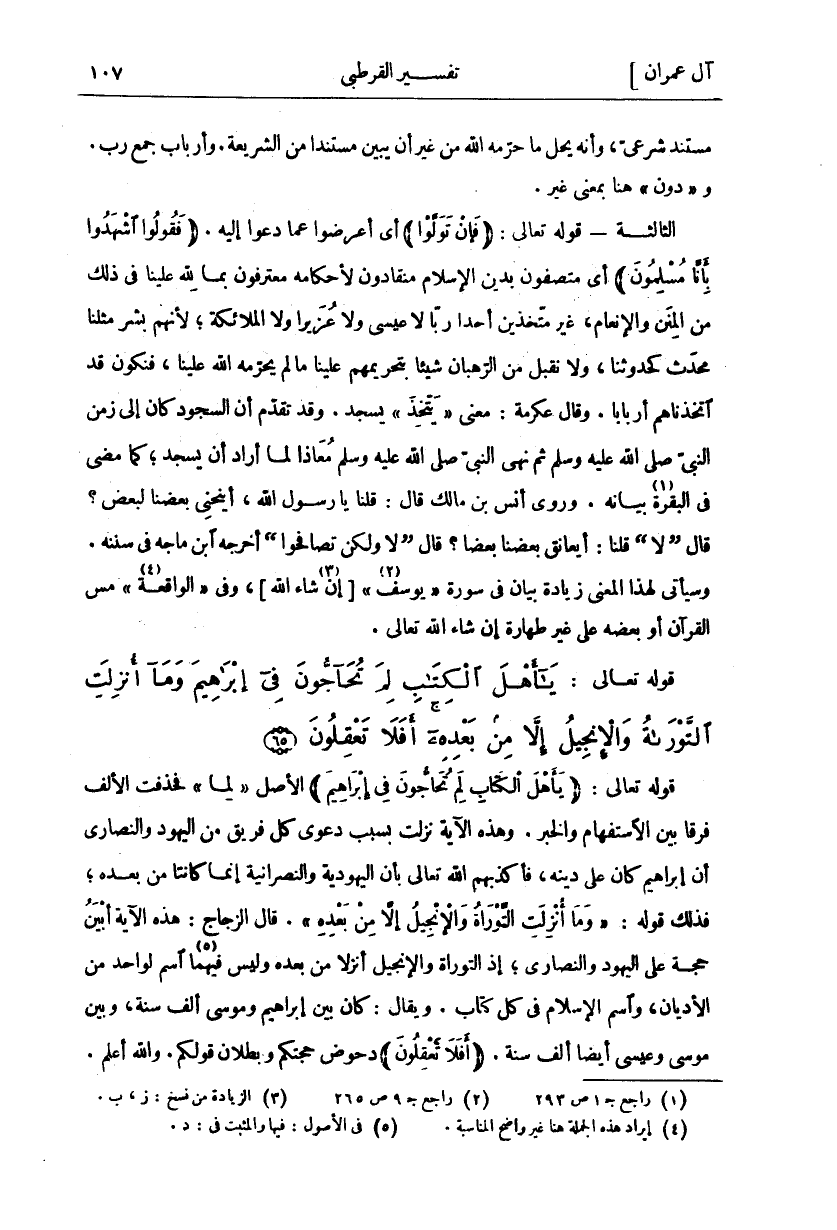 آل عمران ] تفسير القرطبى ١٠٧
مستند شرعىّ، وأنه يحل ما حرّمه الله من غير أن يبين مستندا من الشريعة. وأرباب جمع رب.
و « دون » هنا بمعنى غير .
الثالثة — قوله تعالى : ﴿ فَإِنْ تَوَلَّوْا ﴾ أى أعرضوا عما دعوا إليه . ﴿ فَقُولُوا ٱشْهَدُوا
بِأَنَّا مُسْلِمُونَ ﴾ أى متصفون بدين الإسلام منقادون لأحكامه معترفون بما لله علينا فى ذلك
من المِنَن والإنعام، غير متّخذين أحدا ربّا لا عيسى ولا عُزَيرا ولا الملائكة ؛ لأنهم بشر مثلنا
محدَث كحدوثنا ، ولا نقبل من الرّهبان شيئا بتحريمهم علينا ما لم يحرّمه الله علينا ، فنكون قد
ٱتخذناهم أربابا . وقال عكرمة : معنى « يَتَّخِذَ » يسجد . وقد تقدّم أن السجود كان إلى زمن
النبىّ صلى الله عليه وسلم ثم نهى النبىّ صلى الله عليه وسلم مُعَاذا لما أراد أن يسجد ؛ كما مضى
فى البقرة (١) بيانه . وروى أنس بن مالك قال : قلنا يا رسول الله ، أينحنى بعضنا لبعض ؟
قال ”لا“ قلنا : أيعانق بعضنا بعضا ؟ قال ”لا ولكن تصافحوا“ أخرجه ٱبن ماجه فى سننه .
وسيأتى لهذا المعنى زيادة بيان فى سورة « يوسف (٢) » [ إن (٣) شاء الله ] ، وفى « الواقعة (٤) » مس
القرآن أو بعضه على غير طهارة إن شاء الله تعالى .
قوله تعالى : يَـٰٓأَهْلَ ٱلْكِتَـٰبِ لِمَ تُحَآجُّونَ فِىٓ إِبْرَٰهِيمَ وَمَآ أُنزِلَتِ
ٱلتَّوْرَىٰةُ وَٱلْإِنجِيلُ إِلَّا مِنۢ بَعْدِهِۦٓ ۚ أَفَلَا تَعْقِلُونَ ﴿٦٥﴾
قوله تعالى : ﴿ يَأَهْلَ ٱلْكِتَابِ لِمَ تُحَاجُّونَ فِى إِبْرَاهِيمَ ﴾ الأصل « لِما » فحذفت الألف
فرقا بين الٱستفهام والخبر . وهذه الآية نزلت بسبب دعوى كل فريق من اليهود والنصارى
أن إبراهيم كان على دينه ، فأكذبهم الله تعالى بأن اليهودية والنصرانية إنما كانتا من بعده ؛
فذلك قوله : « وَمَا أُنْزِلَتِ التَّوْرَاةُ وَالْإِنْجِيلُ إِلَّا مِنْ بَعْدِهِ » . قال الزجاج : هذه الآية أبْيَنُ
حجة على اليهود والنصارى ؛ إذ التوراة والإنجيل أنزلا من بعده وليس فيهما (٥) ٱسم لواحد من
الأديان، وٱسم الإسلام فى كل كتاب . ويقال : كان بين إبراهيم وموسى ألف سنة، وبين
موسى وعيسى أيضا ألف سنة . ﴿ أَفَلَا تَعْقِلُونَ ﴾ دحوض حجتكم وبطلان قولكم . والله أعلم .
(١) راجع جـ ١ ص ٢٩٣ (٢) راجع جـ ٩ ص ٢٦٥ (٣) الزيادة من نسخ : ز ، ب .
(٤) إيراد هذه الجملة هنا غير واضح المناسبة . (٥) فى الأصول : فيها والمثبت فى : د .